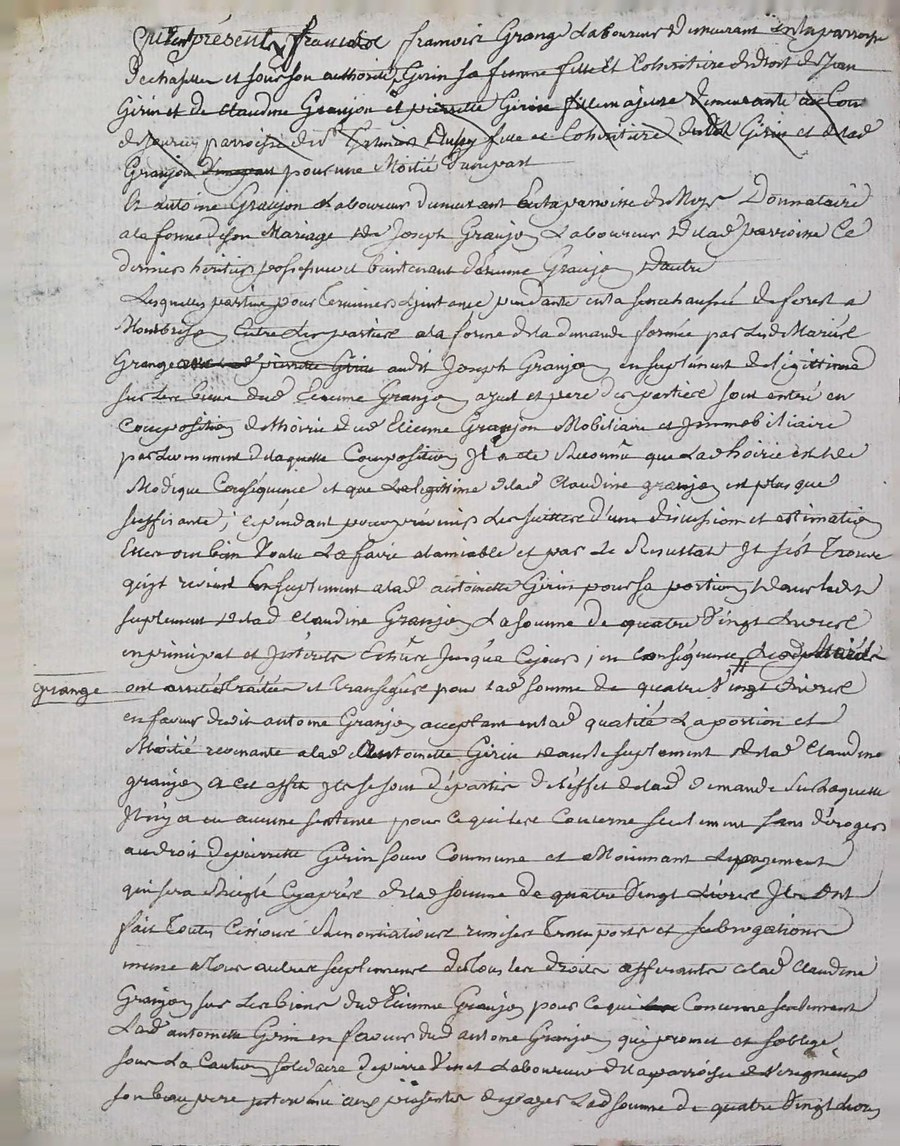 présents françois Grange Laboureur Demeurant en la parroisse
et sous son authorité Girin sa femme fille et Cohéritiere de droit de Jean
Girin et de claudine Granjon et pierrette Girin fille majeure Demeurante au lieu
de parroisse de St fille et Cohéritiere desdt Girin et de lad
Granjon pour une Moitié D'unepart
Et antoine Granjon Laboureur demeurant en la parroisse de Donnataire
a la forme de son Mariage de Joseph Granjon Laboureur de lad parroisse Ce
dernier héritier possesseur et bientenant d'étienne Granjon d'autre
Lesquelles parties pour terminer L'instance pendante en la senechaussée de forest a
Montbrison Entre Les parties a la forme de la demande formée par Lesd Mariés
Grange et lad pierrette Girin audit Joseph Granjon en suplément de légittime
sur Les biens dud Etienne Granjon ayeul et pere des parties sont entré en
Composition de l'hoirie dud Etienne Granjon Mobiliaire et Immobiliaire
par L'evenement de laquelle Composition Il a été Reconnu que Lad hoirie est de
Modique Conséquence et que La légitime de lad Claudine granjon est plus que
suffisante; Cependant pour prévenir Les suittes d'une discussion et estimation
Elles ont bien Voulu Le faire a l'amiable et par Le Resultat Il s'est Trouvé
qu'il revient En suplément a lad antoinette Girin pour sa portion dans led
suplement de lad Claudine Granjon La somme de quatre Vingt Livres
en principal et Intérêts Echus Jusqu'a Ce jour; en Conséquence Lesd Mariés
grange ont arrêté traitté et transigé pour lad somme de quatre Vingt Livres
en faveur dudit antoine Granjon acceptant en lad qualité La portion et
Moitié revenante a lad Antoinette Girin dans le suplement de lad Claudine
granjon a cet effet Ils se sont départis de L'effet de lad Demande sur Laquelle
Il n'y a eu aucune sentence pour ce qui les Concerne seulement sans déroger
au droit de pierrette Girin soeur Commune et Moiennant Le payement
qui sera Réglé Cy après de lad somme de quatre Vingt Livres Ils Ont
fait Toutes Cessions Renontiations remises Transports et subrogations
même a tous autres suplements de tous les droits afferants a lad Claudine
Granjon sur Les biens dud Etienne Granjon pour ce qui Concerne seulement
Lad antoinette Girin en faveur dud antoine Granjon qui promet et s'oblige
sous La Caution solidaire de pierre Vinet Laboureur de la parroisse de
son beau pere intervenu aux présentes de payer Lad somme de quatre Vingt Livres